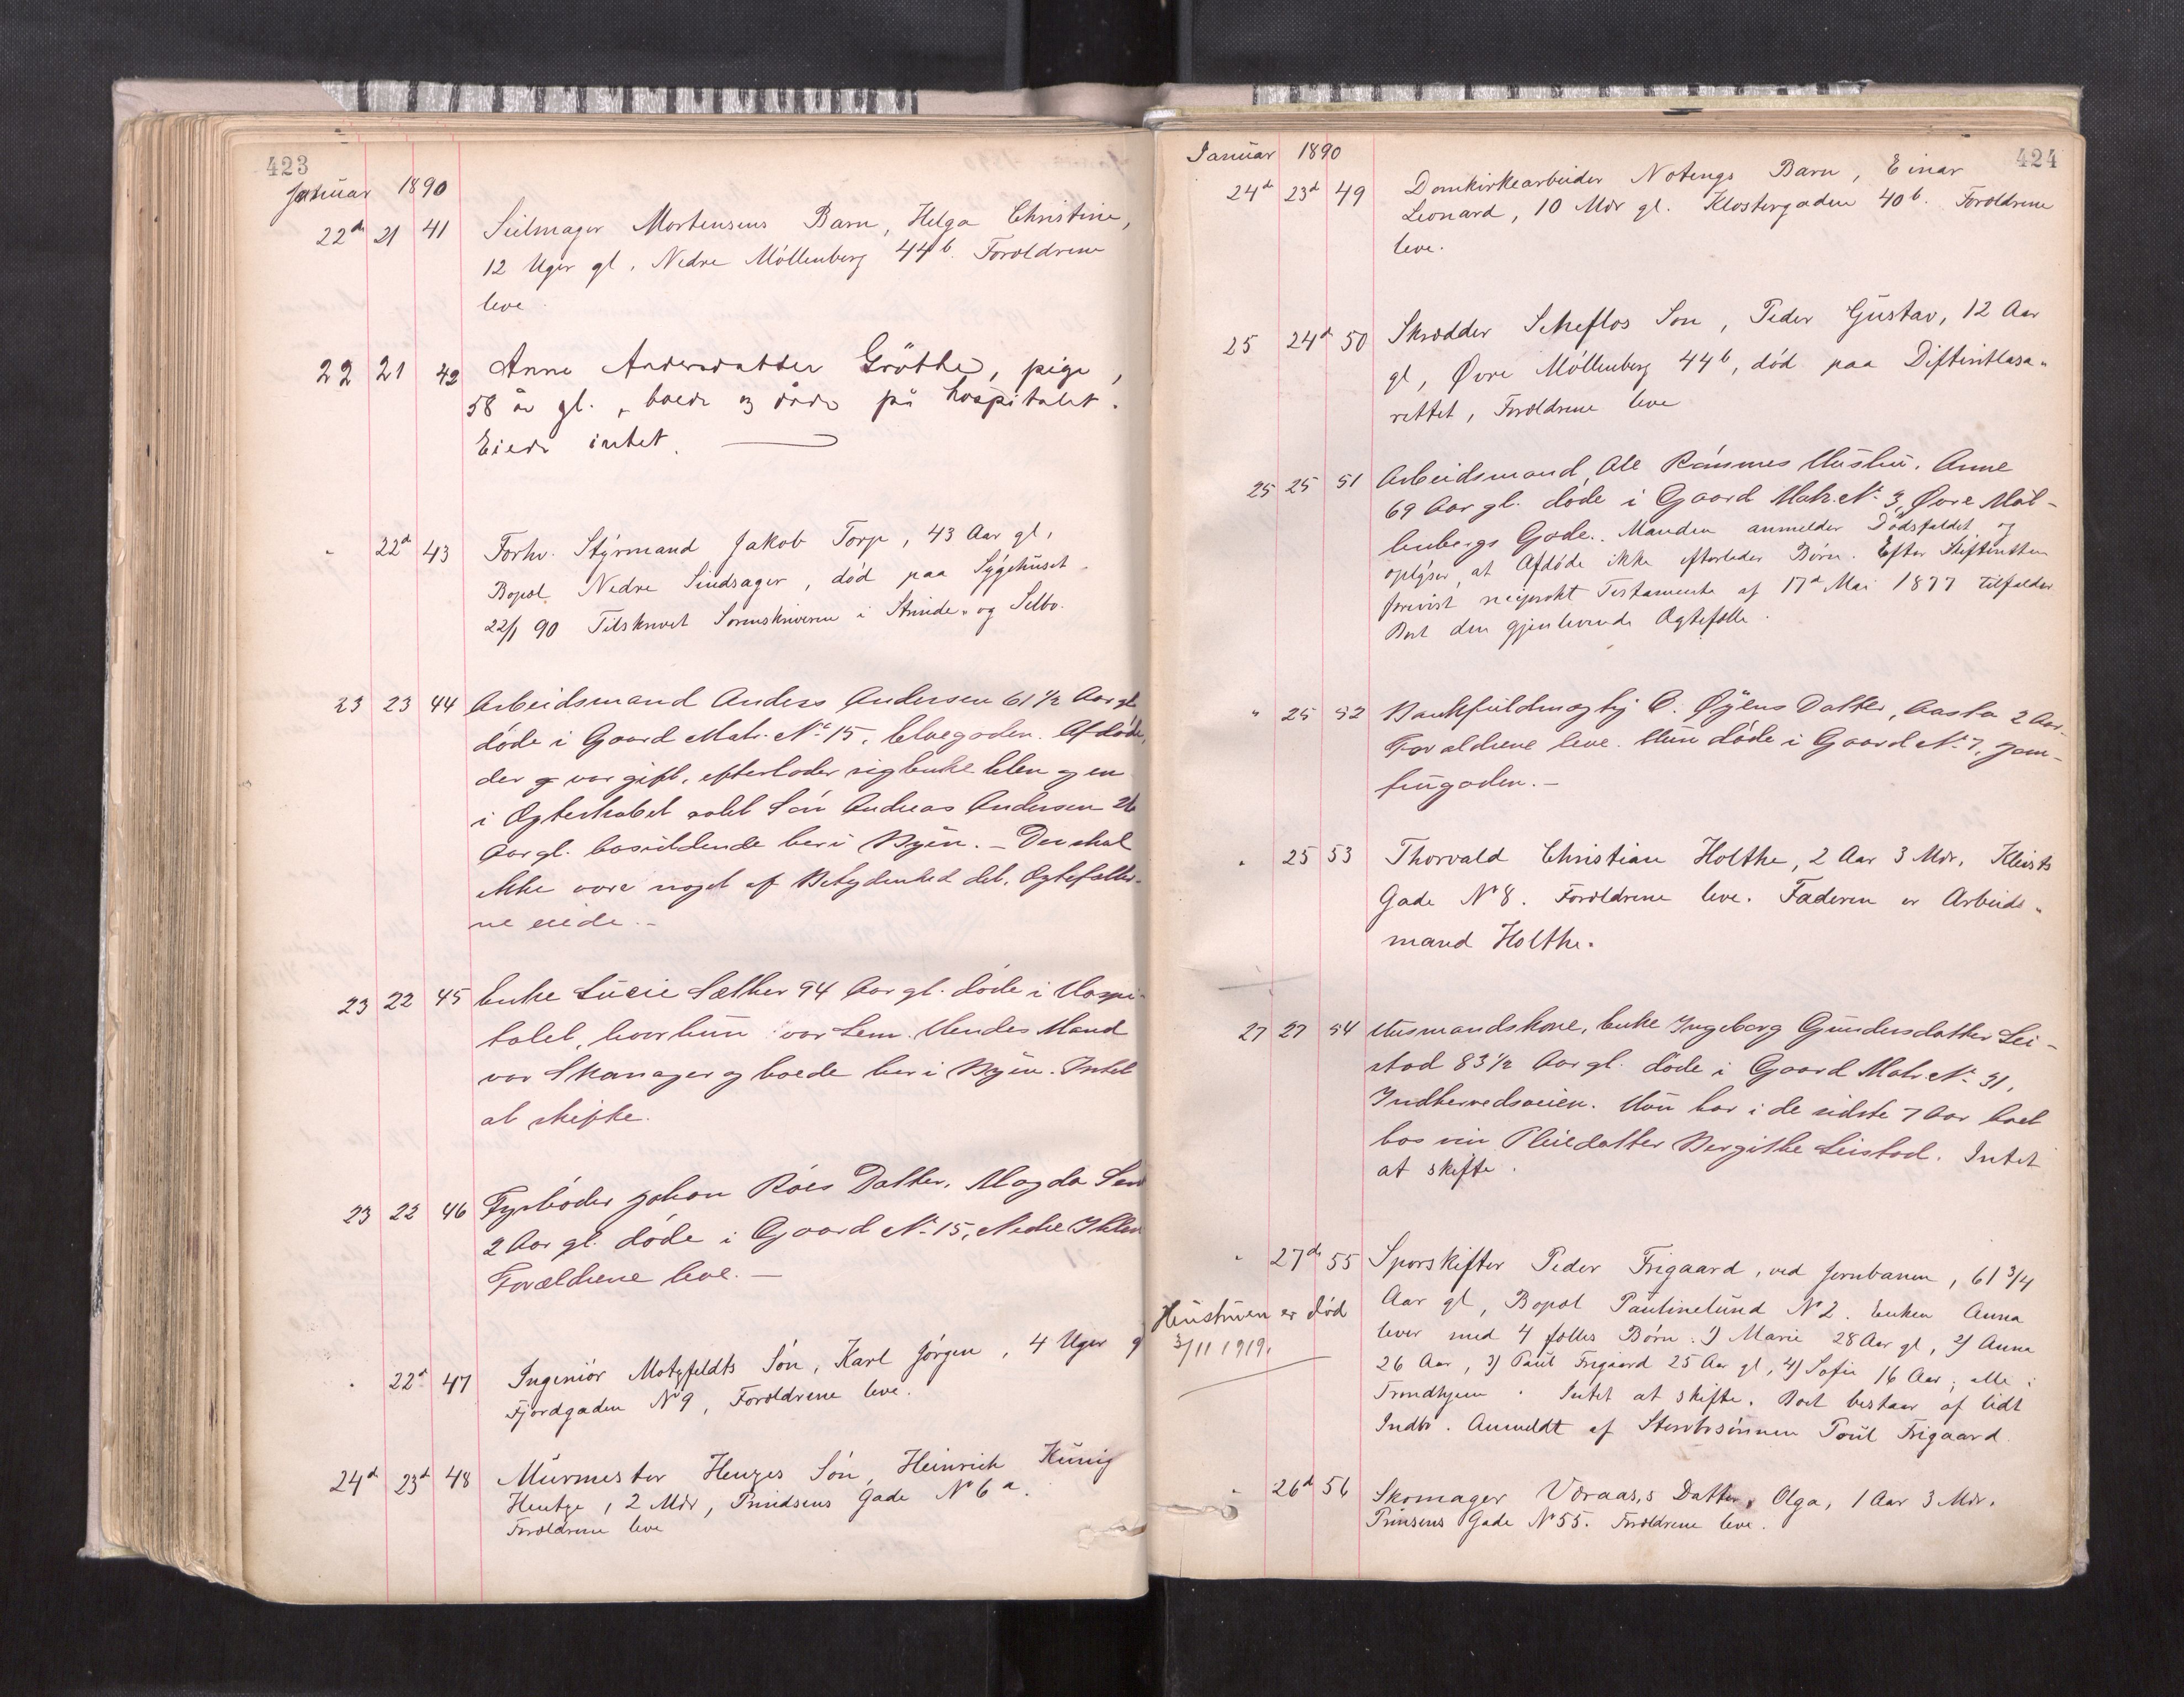 423
Januar 1890
22d 21 41 Seilmager Mortensens Barn, Helga Christine,
12 Uger gl, Nedre Möllenberg 44b. Forældrene
leve.
22 21 42 Anne Andersdatter Gröthe, pige,
58 år gl., boede og döde på hospitalet.
Eiede intet.
" 22d 43 Forhv. Styrmand Jakob Torp, 43 Aar gl,
Bopæl Nedre Sindsager, död paa Sygehuset.
22/1 90 Tilskrevet Sorenskriveren i Strinde- og Selbo.
23 23 44 Arbeidsmand Anders Andersen 61 1/2 Aar gl.
döde i Gaard Matr. No 15, Elvegaden. Afdöde,
der var gift, efterlader sig Enke Elen og en
i Ægteskabet avlet Sön Andreas Andersen 26
Aar gl. bosiddende her i Byen. – Der skal
ikke være noget af Betydenhed det, Ægtefælle-
ne eiede. –
23 22 45 Enke Lucie Sæther 94 Aar gl. döde i Hospi-
talet, hvor hun var Lem. Hendes Mand
var Skomager og boede her i Byen. Intet
at skifte.
23 22 46 Fyrböder Johan Röes Datter, Magda
2 Aar gl. döde i Gaard No 15, Nedre Ihlen
Forældrene leve. –
" 22d 47 Ingeniör Motzfeldts Sön, Karl Jörgen, 4 Uger g
Fjordgaden No 9, Forældrene leve.
24d 23d 48 Murmester Henzes Sön, Heinrich König
Hentze, 2 Mdr, Prindsens Gade No 6a.
Forældrene leve
424
Januar 1890
24d 23d 49 Domkirkearbeider Notengs Barn, Einar
Leonard, 10 Mdr gl. Klostergaden 40b. Forældrene
leve.
25 24d 50 Skrædder Scheflos Søn, Peder Gustav, 12 Aar
gl, Øvre Möllenberg 44b, død paa Difteritlasa-
rettet, Forældrene leve
25 25 51 Arbeidsmand Ole Rönnes Hustru, Anne
69 Aar gl. døde i Gaard Matr. No 3, Øvre Møl-
lenbergs Gade. Manden anmelder Dödsfaldet og
oplyser, at Afdöde ikke efterlader Börn. Efter Skifteretten
forevist reciprokt Testamente af 17d Mai 1877 tilfalder
Boet den gjenlevende Ægtefælle.
" 25 52 Bankfuldmægtig O. Øyens Datter, Aasta 2 Aar.
Forældrene leve. Hun døde i Gaard No 7, Jom-
frugaden. –
" 25 53 Thorvald Christian Holthe, 2 Aar 3 Mdr, Kleists
Gade No 8. Forældrene leve. Faderen er Arbeids-
mand Holthe.
27 27 54 Husmandskone, Enke Ingeborg Gundersdatter Lei-
stad 83 1/2 Aar gl. döde i Gaard Matr. No 31,
Indherredsveien. Hun har i de sidste 7 Aar boet
hos sin Pleiedatter Bergithe Leistad. Intet
at skifte.
" 27de 55 Sporskifter Peder Frigaard, ved Jernbanen, 61 3/4
Aar gl, Bopæl Paulinelund No 2. Enken Anna
lever med 4 fælles Børn: 1) Marie 28 Aar gl, 2) Anna
26 Aar, 3) Paul Frigaard 25 Aar gl, 4) Sofie 16 Aar; alle i
Trondhjem. Intet at skifte. Boet bestaar af lidt
Indbo. Anmeldt af Stervbosönnen Poul Frigaard.
Hustruen er död
3/11 1919.
" 26d 56 Skomager Væraas,s Datter, Olga, 1 Aar 3 Mdr.
Prinsens Gade No 55. Forældrene leve.